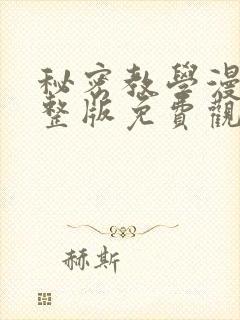 秘密教學漫
整版免費觀
赫斯